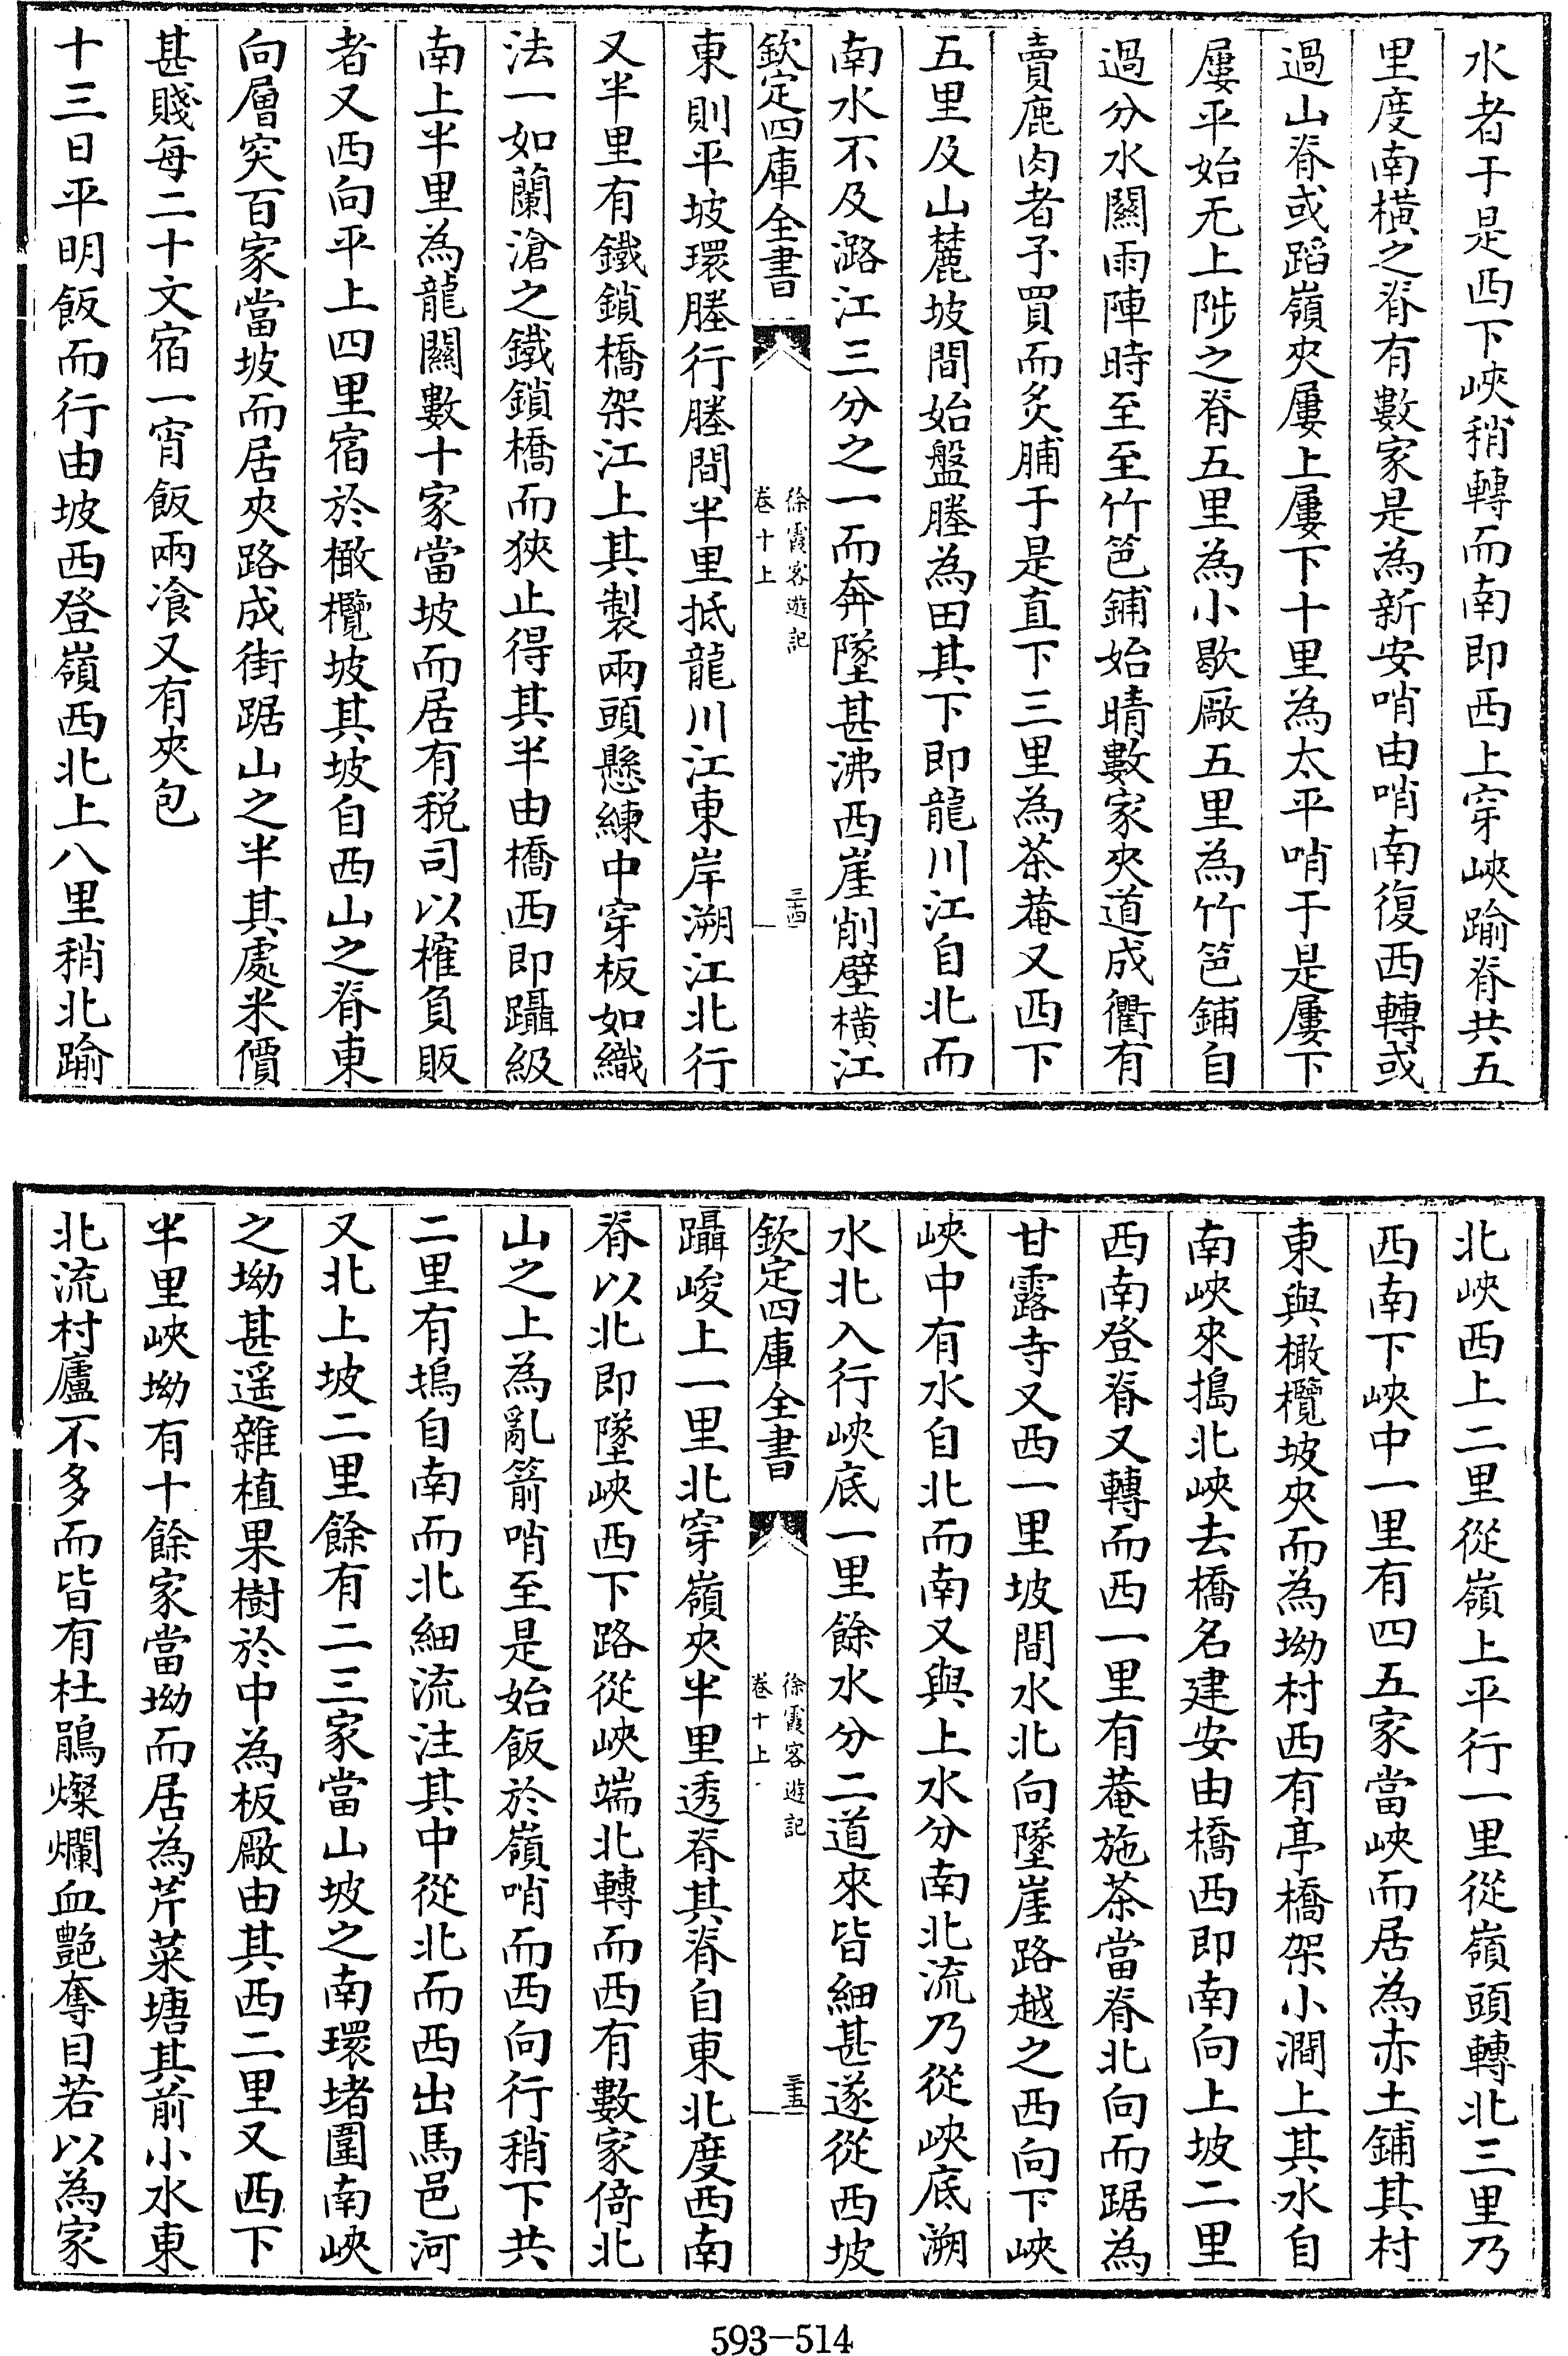 水者于是西下峽稍轉而南即西上穿峽踰脊共五
里度南橫之脊有數家是為新安哨由哨南復西轉或
過山脊或蹈嶺夾屢上屢下十里為太平哨于是屢下
屢平始无上陟之脊五里為小歇厰五里為竹笆鋪自
過分水關雨陣時至至竹笆鋪始晴數家夾道成衢有
賣鹿肉者予買而炙脯于是直下三里為茶菴又西下
五里及山麓坡間始盤塍為田其下即龍川江自北而
南水不及潞江三分之一而奔墜甚沸西崖削壁橫江
欽定四庫全書
徐霞客遊記
卷十上
三四
東則平坡環塍行塍間半里抵龍川江東岸溯江北行
又半里有鐵鎖橋架江上其製兩頭懸練中穿板如織
法一如蘭滄之鐵鎖橋而狹止得其半由橋西即躡級
南上半里為龍關數十家當坡而居有税司以榷負販
者又西向平上四里宿於橄欖坡其坡自西山之脊東
向層突百家當坡而居夾路成街踞山之半其處米價
甚賤每二十文宿一宵飯兩飡又有夾包
十三日平明飯而行由坡西登嶺西北上八里稍北踰
北峽西上二里從嶺上平行一里從嶺頭轉北三里乃
西南下峽中一里有四五家當峽而居為赤土鋪其村
東與橄欖坡夾而為坳村西有亭橋架小澗上其水自
南峽來搗北峽去橋名建安由橋西即南向上坡二里
西南登脊又轉而西一里有菴施茶當脊北向而踞為
甘露寺又西一里坡間水北向墜崖路越之西向下峽
峽中有水自北而南又與上水分南北流乃從峽底溯
水北入行峽底一里餘水分二道來皆細甚遂從西坡
欽定四庫全書
徐霞客遊記
卷十上
三五
躡峻上一里北穿嶺夾半里透脊其脊自東北度西南
脊以北即墜峽西下路從峽端北轉而西有數家倚北
山之上為亂箭哨至是始飯於嶺哨而西向行稍下共
二里有塢自南而北細流注其中從北而西出馬邑河
又北上坡二里餘有二三家當山坡之南環堵圍南峽
之坳甚遥雜植果樹於中為板厰由其西二里又西下
半里峽坳有十餘家當坳而居為芹菜塘其前小水東
北流村廬不多而皆有杜鵑燦爛血艷奪目若以為家
593-514